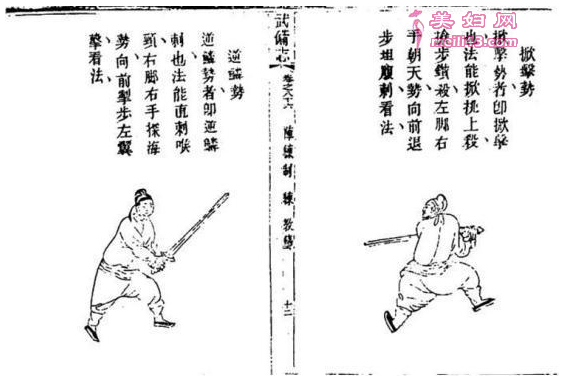 掀擊勢
掀擊勢者即掀擊
也法能掀挑上殺
搶步鑽殺左脚右
手朝天勢向前退
步坦腹刺看法
武備志 卷之八十六 陣練制 練 教藝 十二
逆鱗勢
逆鱗勢者即逆鱗
刺也法能直刺喉
頸右脚右手探海
勢向前掣步左翼
擊看法
美妇网